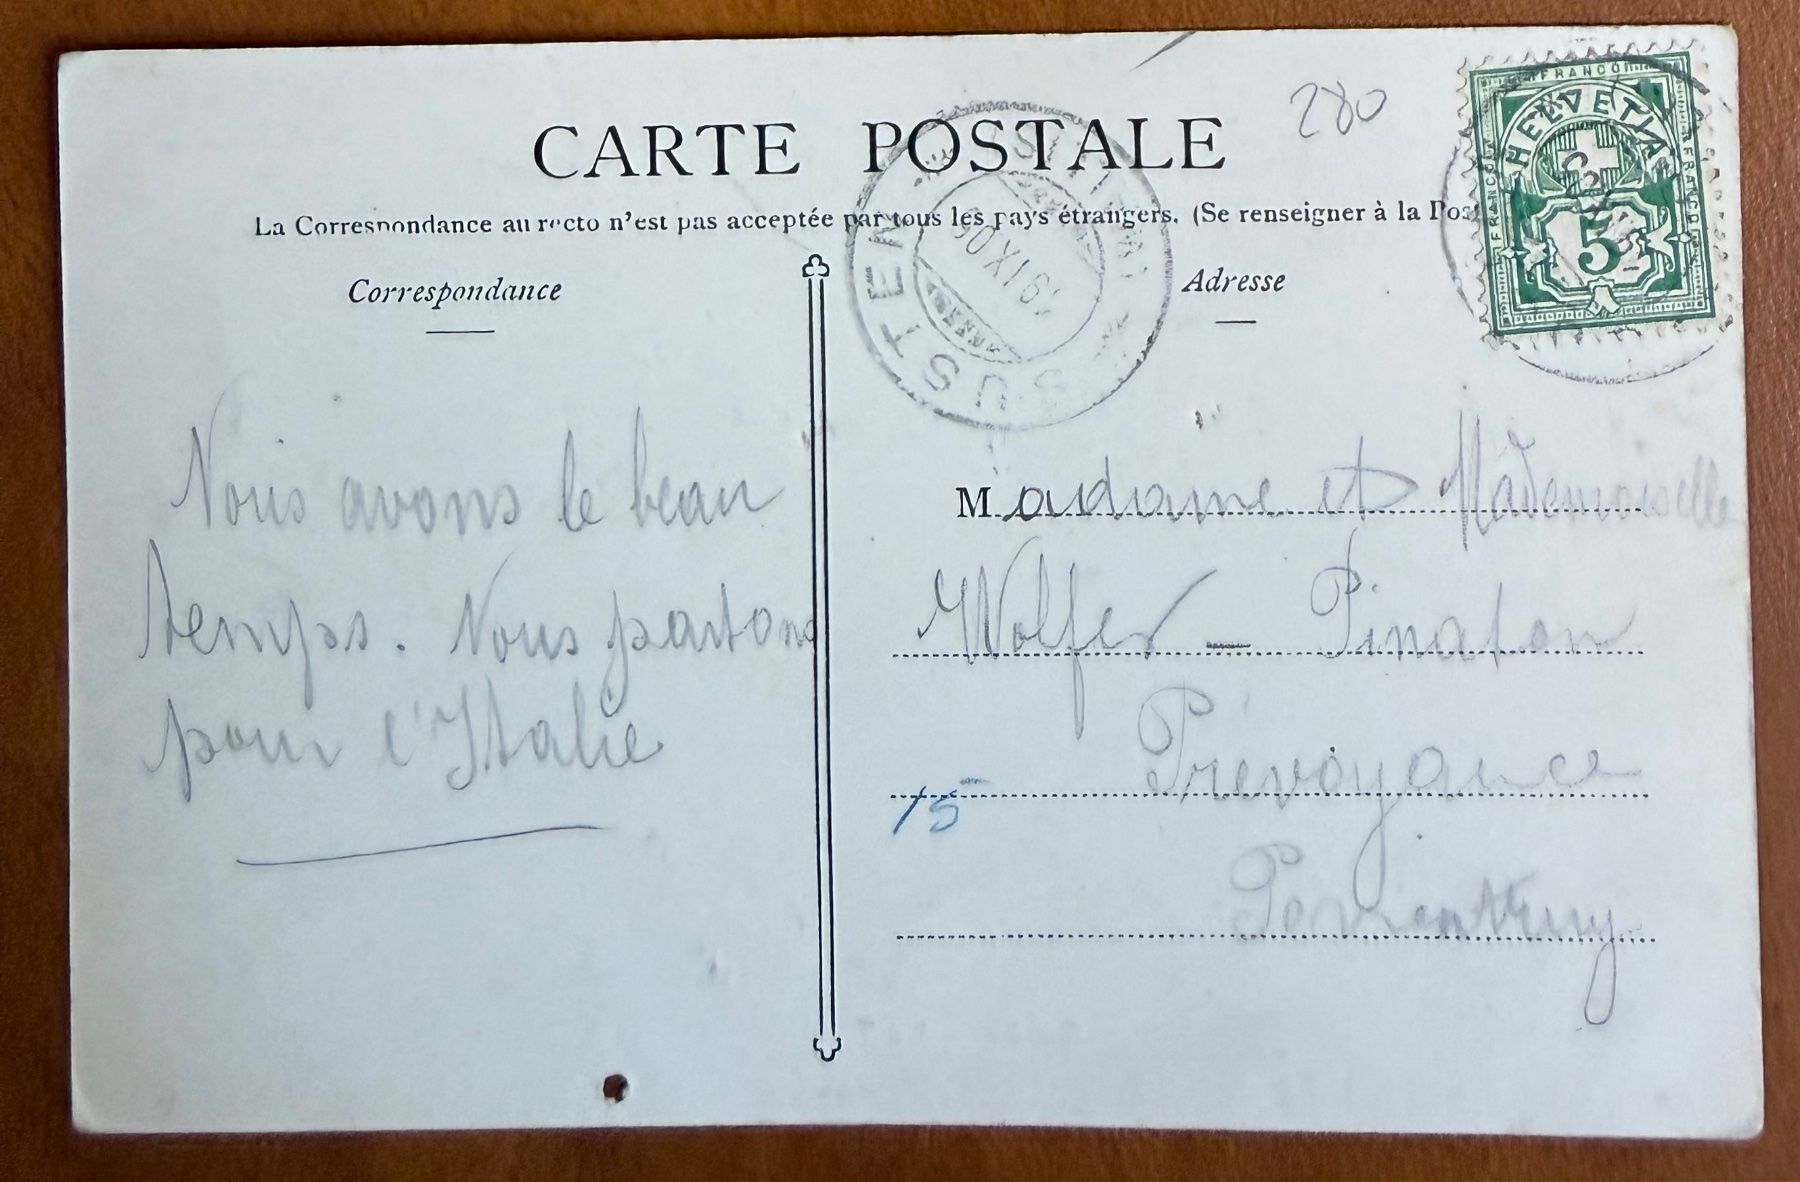 CARTE POSTALE
280
La Correspondance au recto n'est pas acceptée par tous les pays étrangers. (Se renseigner à la Post
Correspondance
Adresse
FRANCO
HELVETIA
FRANCO
FRANCO
5
SUSTEN
Nous avons le beau
temps. Nous partons
pour l'Italie
Madame et Mademoiselle
Wolfer - Pinaton
Prévoyance
15
Porrentruy